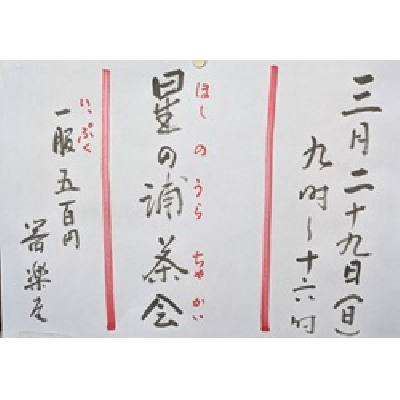 三月二十九日(日)
九時〜十六時
星の浦茶会
ほしのうらちゃかい
一服五百円
いっぷく
器楽庵